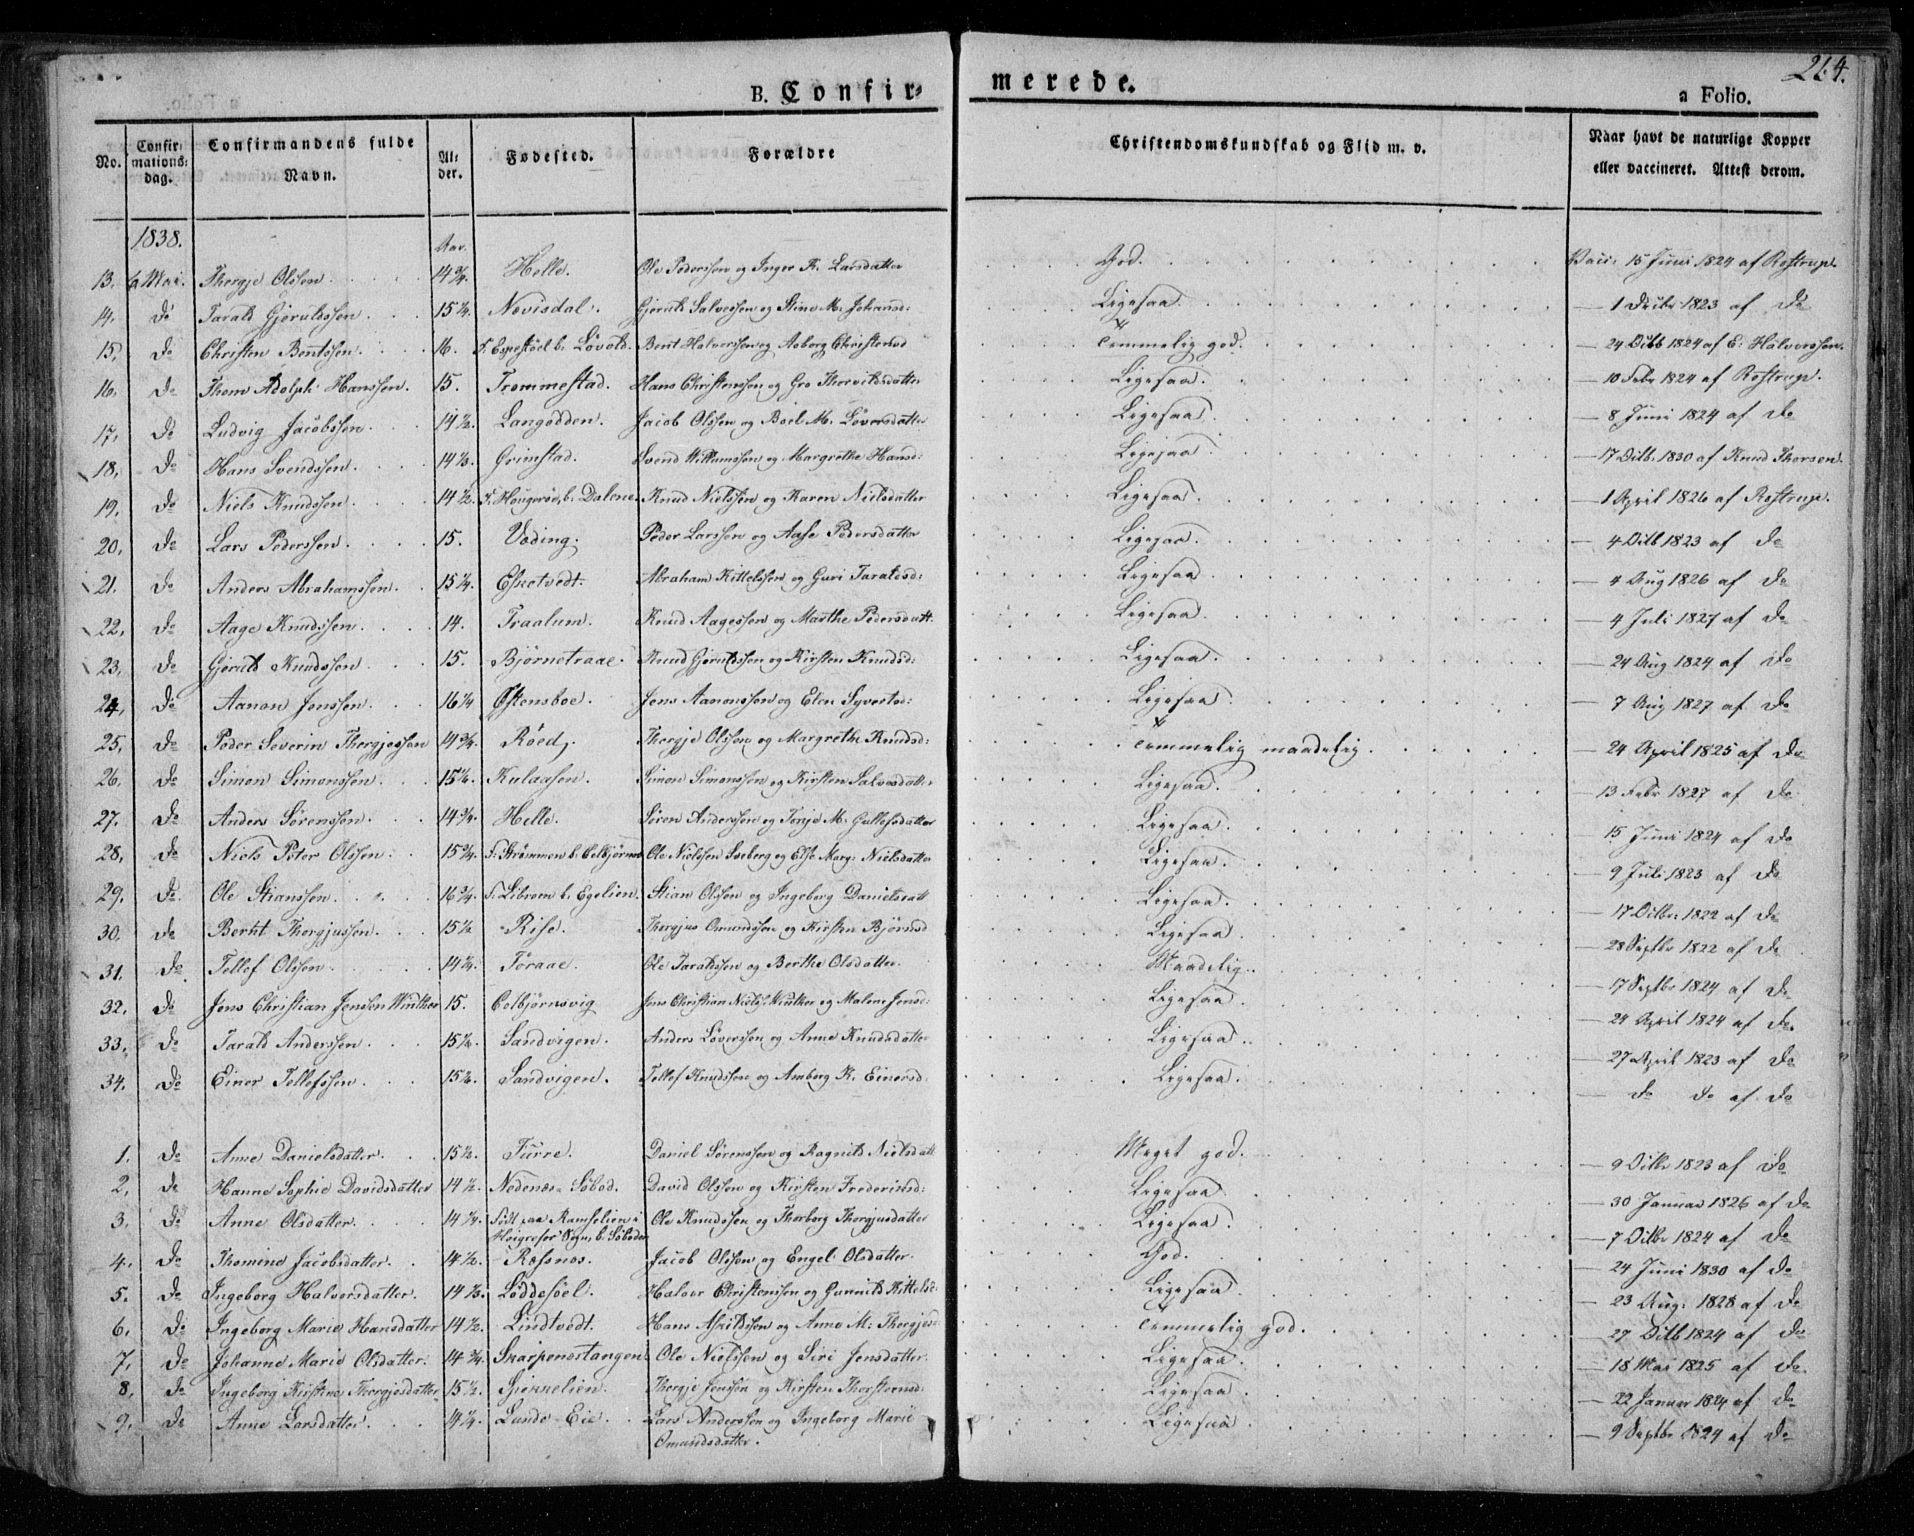 214.
B. Confir= merede.
a Folio.
No. Confirmations: dag. Confirmandens fulde Navn. Alder. Fødested. Forældre Christendomskundskab og Flid m. v. Naar havt de naturlige Kopper eller vaccineret. Attest derom.
1838. Aar.
13. 6 Mai. Thergje Olssen. 14 3/4. Helle. Ole Pederssen og Inger K. Larsdatter God. Vacc: 15 Juni 1824 af Rostrup.
14. do Tarald Gjeruldssen. 15 1/4. Novisdal. Gjeruld Salvessen og Stine M. Johansd: Ligesaa. — 1 Decbr 1823 af do
15. do Christen Bentssen. 16. F. Espestøel b. Løvold. Bent Halverssen og Aaborg Christensd Temmelig god. — 24 Octb 1824 af E. Halverssen.
16. do Thom Adolph Hanssen. 15. Trommestad. Hans Christenssen og Gro Thorvildsdatter Ligesaa. — 10 Febr 1824 af Rostrup.
17. do Ludvig Jacobssen. 14 1/2. Langodden. Jacob Olssen og Boel M. Løversdatter Ligesaa. — 8 Juni 1824 af do
18. do Hans Svendssen. Grimstad. Svend Willumssen og Margrethe Hansd: Ligesaa. — 17 Octb. 1830 af Knud Thorsen.
19. do Niels Knudssen. 14 1/2. b. Dalene. Knud Nielssen og Karen Nielsdatter Ligesaa. — 1 April 1826 af Rostrup.
20. do Lars Pederssen. 15. Vøding. Peder Larssen og Aase Pedersdatter Ligesaa. — 4 Octb 1823 af do
21. do Anders Abrahamssen. 15 1/4. Esketvedt. Abraham Kittelssen og Guri Taraldsd: Ligesaa — 4 Aug 1826 af do
22. do Aage Knudssen. 14. Traalum. Knud Aagessen og Marthe Pedersdatt. Ligesaa. — 4 Juli 1827 af do
23. do Gjeruld Knudssen. 15. Bjørnetraae. Knud Gjeruldssen og Kirsten Knudsd: Ligesaa. — 24 Aug 1824 af do
24. do Aanon Jenssen. 16 1/4 Østensboe. Jens Aanonssen og Elen Syvertsd: Ligesaa. — 7 Aug 1827 af do
25. do Peder Severin Thergjessen 14 3/4. Røed. Thergje Olssen og Margrethe Knudsd: Temmelig maadelig. — 24 April 1825 af do
26. do Simon Simonssen. 15 1/2. Kulaasen. Simon Simonssen og Kirsten Salvesdatter Ligesaa. — 13 Febr 1827 af do
27. do Anders Sørenssen. 14 3/4. Helle. Søren Anderssen og Terje M. Gullefsdatter Ligesaa. — 15 Juni 1824 af do
28. do Niels Peter Olssen. 15 3/4. F. Strømmen b. Colbjørns Ole Nielssen Soeberg og Else Marg: Nielsdatter Ligesaa. — 9 Juli 1823 af do
29. do Ole Stianssen. 16 3/4. F. Libroen b. Egelien. Stian Olssen og Ingeborg Danielsdatt Ligesaa. — 17 Octbr 1822 af do
30. do Berht Thergjussen. 15 1/2 Rise. Thergjus Omundssen og Kirsten Bjørnsd Ligesaa. — 28 Septbr 1822 af do
31. do Tellef Olssen. 14 1/4. Toraae. Ole Taraldssen og Berthe Olsdatter. Maadelig. — 17 Septbr 1824 af do
32. do Jens Christian Jenssen Winther 15. Colbjørnsvig Jens Christian Niels. Winther og Malene Jensd: Ligesaa. — 24 April 1824 af do.
33. do Tarald Anderssen. 15 1/2. Sandvigen. Anders Løverssen og Anne Knudsdatter Ligesaa. — 27 April 1823 af do
34. do Einer Tellefssen. 15 1/2. Sandvigen. Tellef Knudssen og Amborg K. Einersd: Ligesaa. — do do af do
1. do Anne Danielsdatter. 15 1/2. Furre. Daniel Sørenssen og Ragnild Nielsdatt Meget god. — 9 Octbr 1823 af do
2. do Hanne Sophie Davidsdatter 14 1/2. Nedenæs Søbod. David Olssen og Kirsten Frederiksd: Ligesaa. — 30 Januar 1826 af do
3. do Anne Olsdatter. 14 1/4. Født paa Ramselien i Ole Knudssen og Thorborg Thergjusdatter Ligesaa. — 7 Octbr 1824 af do
Sogn, b. Søboden
4. do Thomine Jacobsdatter. 14 1/2. Refsnes. Jacob Olssen og Engel Olsdatter. God. — 24 Juni 1830 af do
5. do Ingeborg Halversdatter. Løddesøel. Halver Christenssen og Gunnild Kittelsd Ligesaa. — 23 Aug: 1828 af do
6. do Ingeborg Marie Hansdatter 14 1/2. Lindtvedt. Hans Askildssen og Anne M. Thergjesd Temmelig god. — 27 Octb 1824 af do
7. do Johanne Marie Olsdatter. 14 3/4. Skarpenestangen. Ole Nielssen og Siri Jensdatter. Ligesaa. — 18 Mai 1825 af do.
8. do Ingeborg Kirstine Thergjesdatter 15 1/2. Spernelien. Thergje Jenssen og Kirsten Thorstensd: Ligesaa. — 22 Januar 1824 af do
9. do Anne Larsdatter. 14 1/4. Lunde Eie. Lars Anderssen og Ingeborg Marie Ligesaa. — 9 Septbr 1824 af do
Omundsdatter.